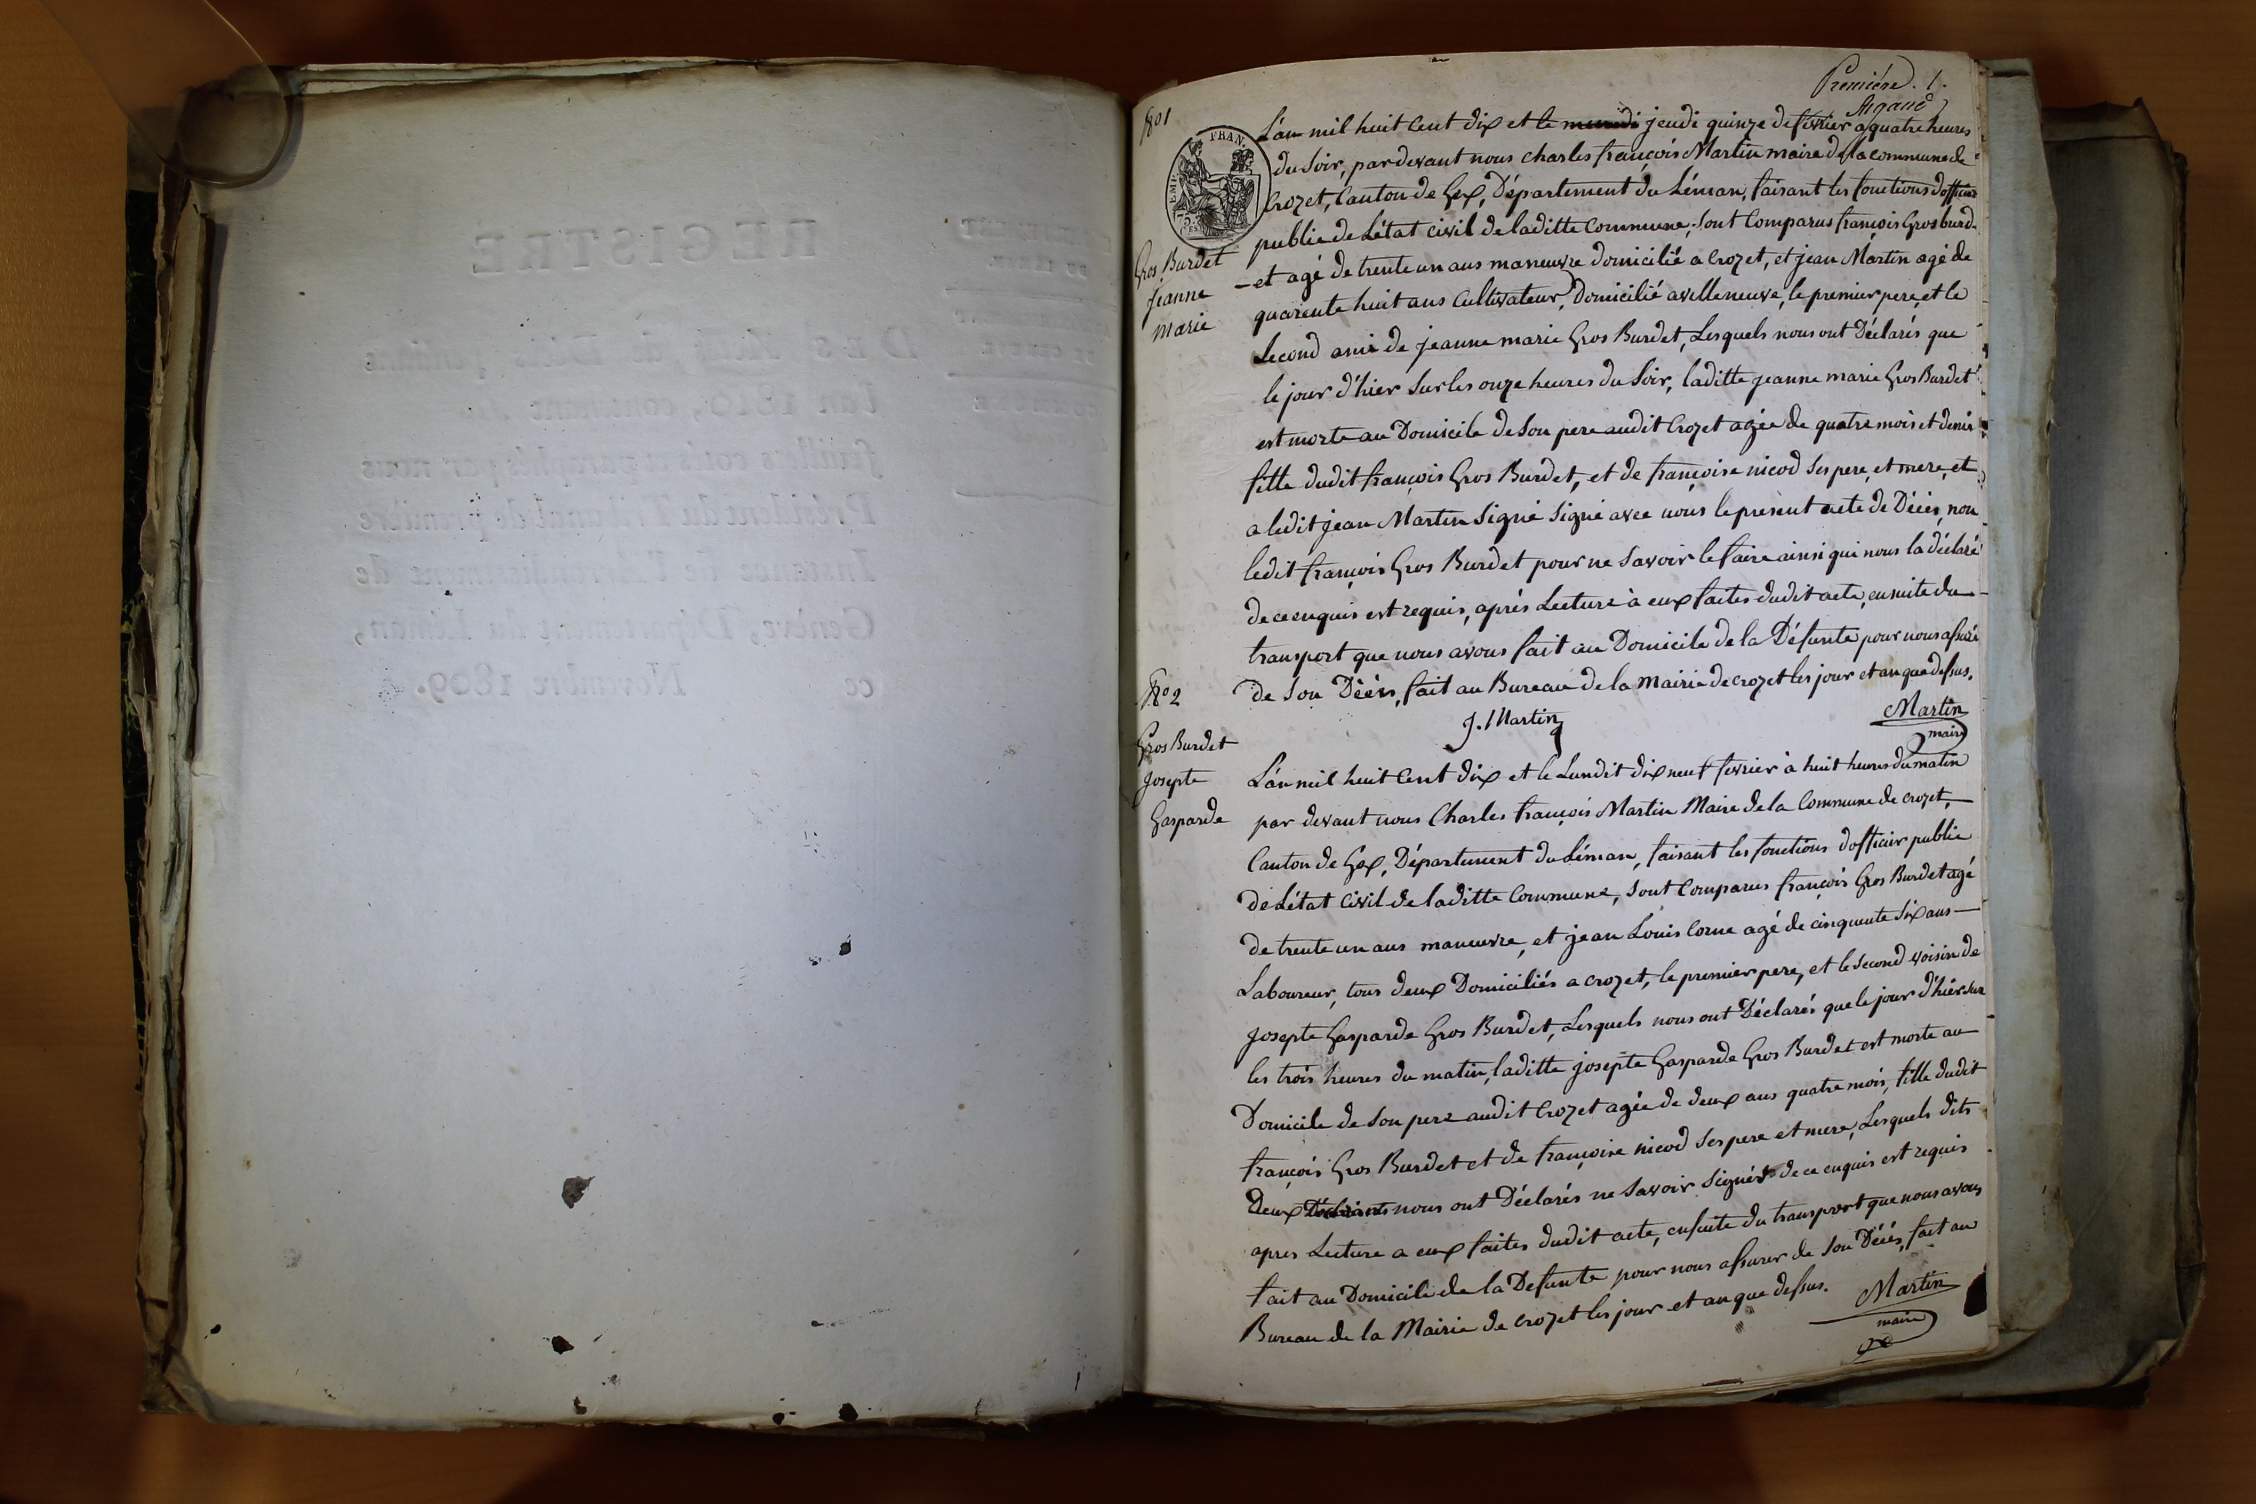 Première. 1.
Argand
No 1
L'an mil huit Cent dix et le mercredi jeudi quinze de fevrier a quatre heures
du Soir, pardevant nous charles françois Martin maire de la commune de
Crozet, Canton de Gex, Département du Léman, faisant les fonctions d'officier
public de L'état civil de laditte Commune, Sont Comparus françois Gros burd-
Gros Burdet
jeanne
marie
-et agé de trente un ans maneuvre domicilié a Crozet, et jean Martin agé de
quarente huit ans Cultivateur, Domicilié a villeneuve, le premier pere, et le
Second ami de jeanne marie Gros Burdet, Lesquels nous ont Déclarés que
le jour d'hier Sur les onze heures du Soir, laditte jeanne marie Gros Burdet
est morte au Domicile de Son pere audit Crozet agée de quatre mois et demis
fille dudit françois Gros Burdet, et de françoise nicod Ses pere, et mere, et
a ledit jean Martin Signé Signé avec nous le présent acte de Décés, non
ledit françois Gros Burdet pour ne Savoir le faire ainsi qui nous la déclaré
de ce enquis est requis, aprés Lecture à eux faites dudit acte, ensuite du
transport que nous avons fait au Domicile de la Défunte pour nous assuré
de Son Décés, fait au Bureau de la Mairie de crozet les jour et an que dessus.
J. Martin
Martin
maire
No 2
Gros Burdet
Josepte
Gasparde
L'an mil huit Cent dix et le Lundit dix neuf fevrier à huit heures du matin
par devant nous Charles françois Martin Maire de la Commune de crozet,
Canton de Gex, Département du Léman, faisant les fonctions d'officier public
de L'état Civil de laditte Commune, Sont Comparus françois Gros Burdet agé
de trente un ans maneuvre, et jean Louis Corne agé de cinquente Six ans
Laboureur, tous deux Domiciliés a crozet, le premier pere, et le Second voisin de
Josepte Gasparde Gros Burdet, Lesquels nous ont Déclarés que le jour d'hier Sur
les trois heures du matin, laditte josepte Gasparde Gros Burdet est morte au
Domicile de Son pere audit Crozet agée de deux ans quatre mois, fille dudit
françois Gros Burdet et de françoise nicod Ses pere et mere, Lesquels dits
deux Déclarants nous ont Déclarés ne Savoir Signér de ce enquis est requis
apres Lecture a eux faites dudit acte, ensuite du transport que nous avons
fait au Domicile de la Defunte pour nous assurer de Son Décés, fait au
Bureau de la Mairie de crozet les jour et an que dessus.
Martin
maire